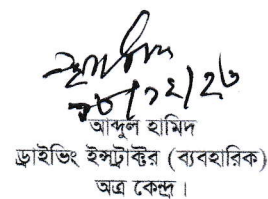 আব্দুল হামিদ
ড্রাইভিং ইন্সট্রাক্টর (ব্যবহারিক)
অত্র কেন্দ্র।